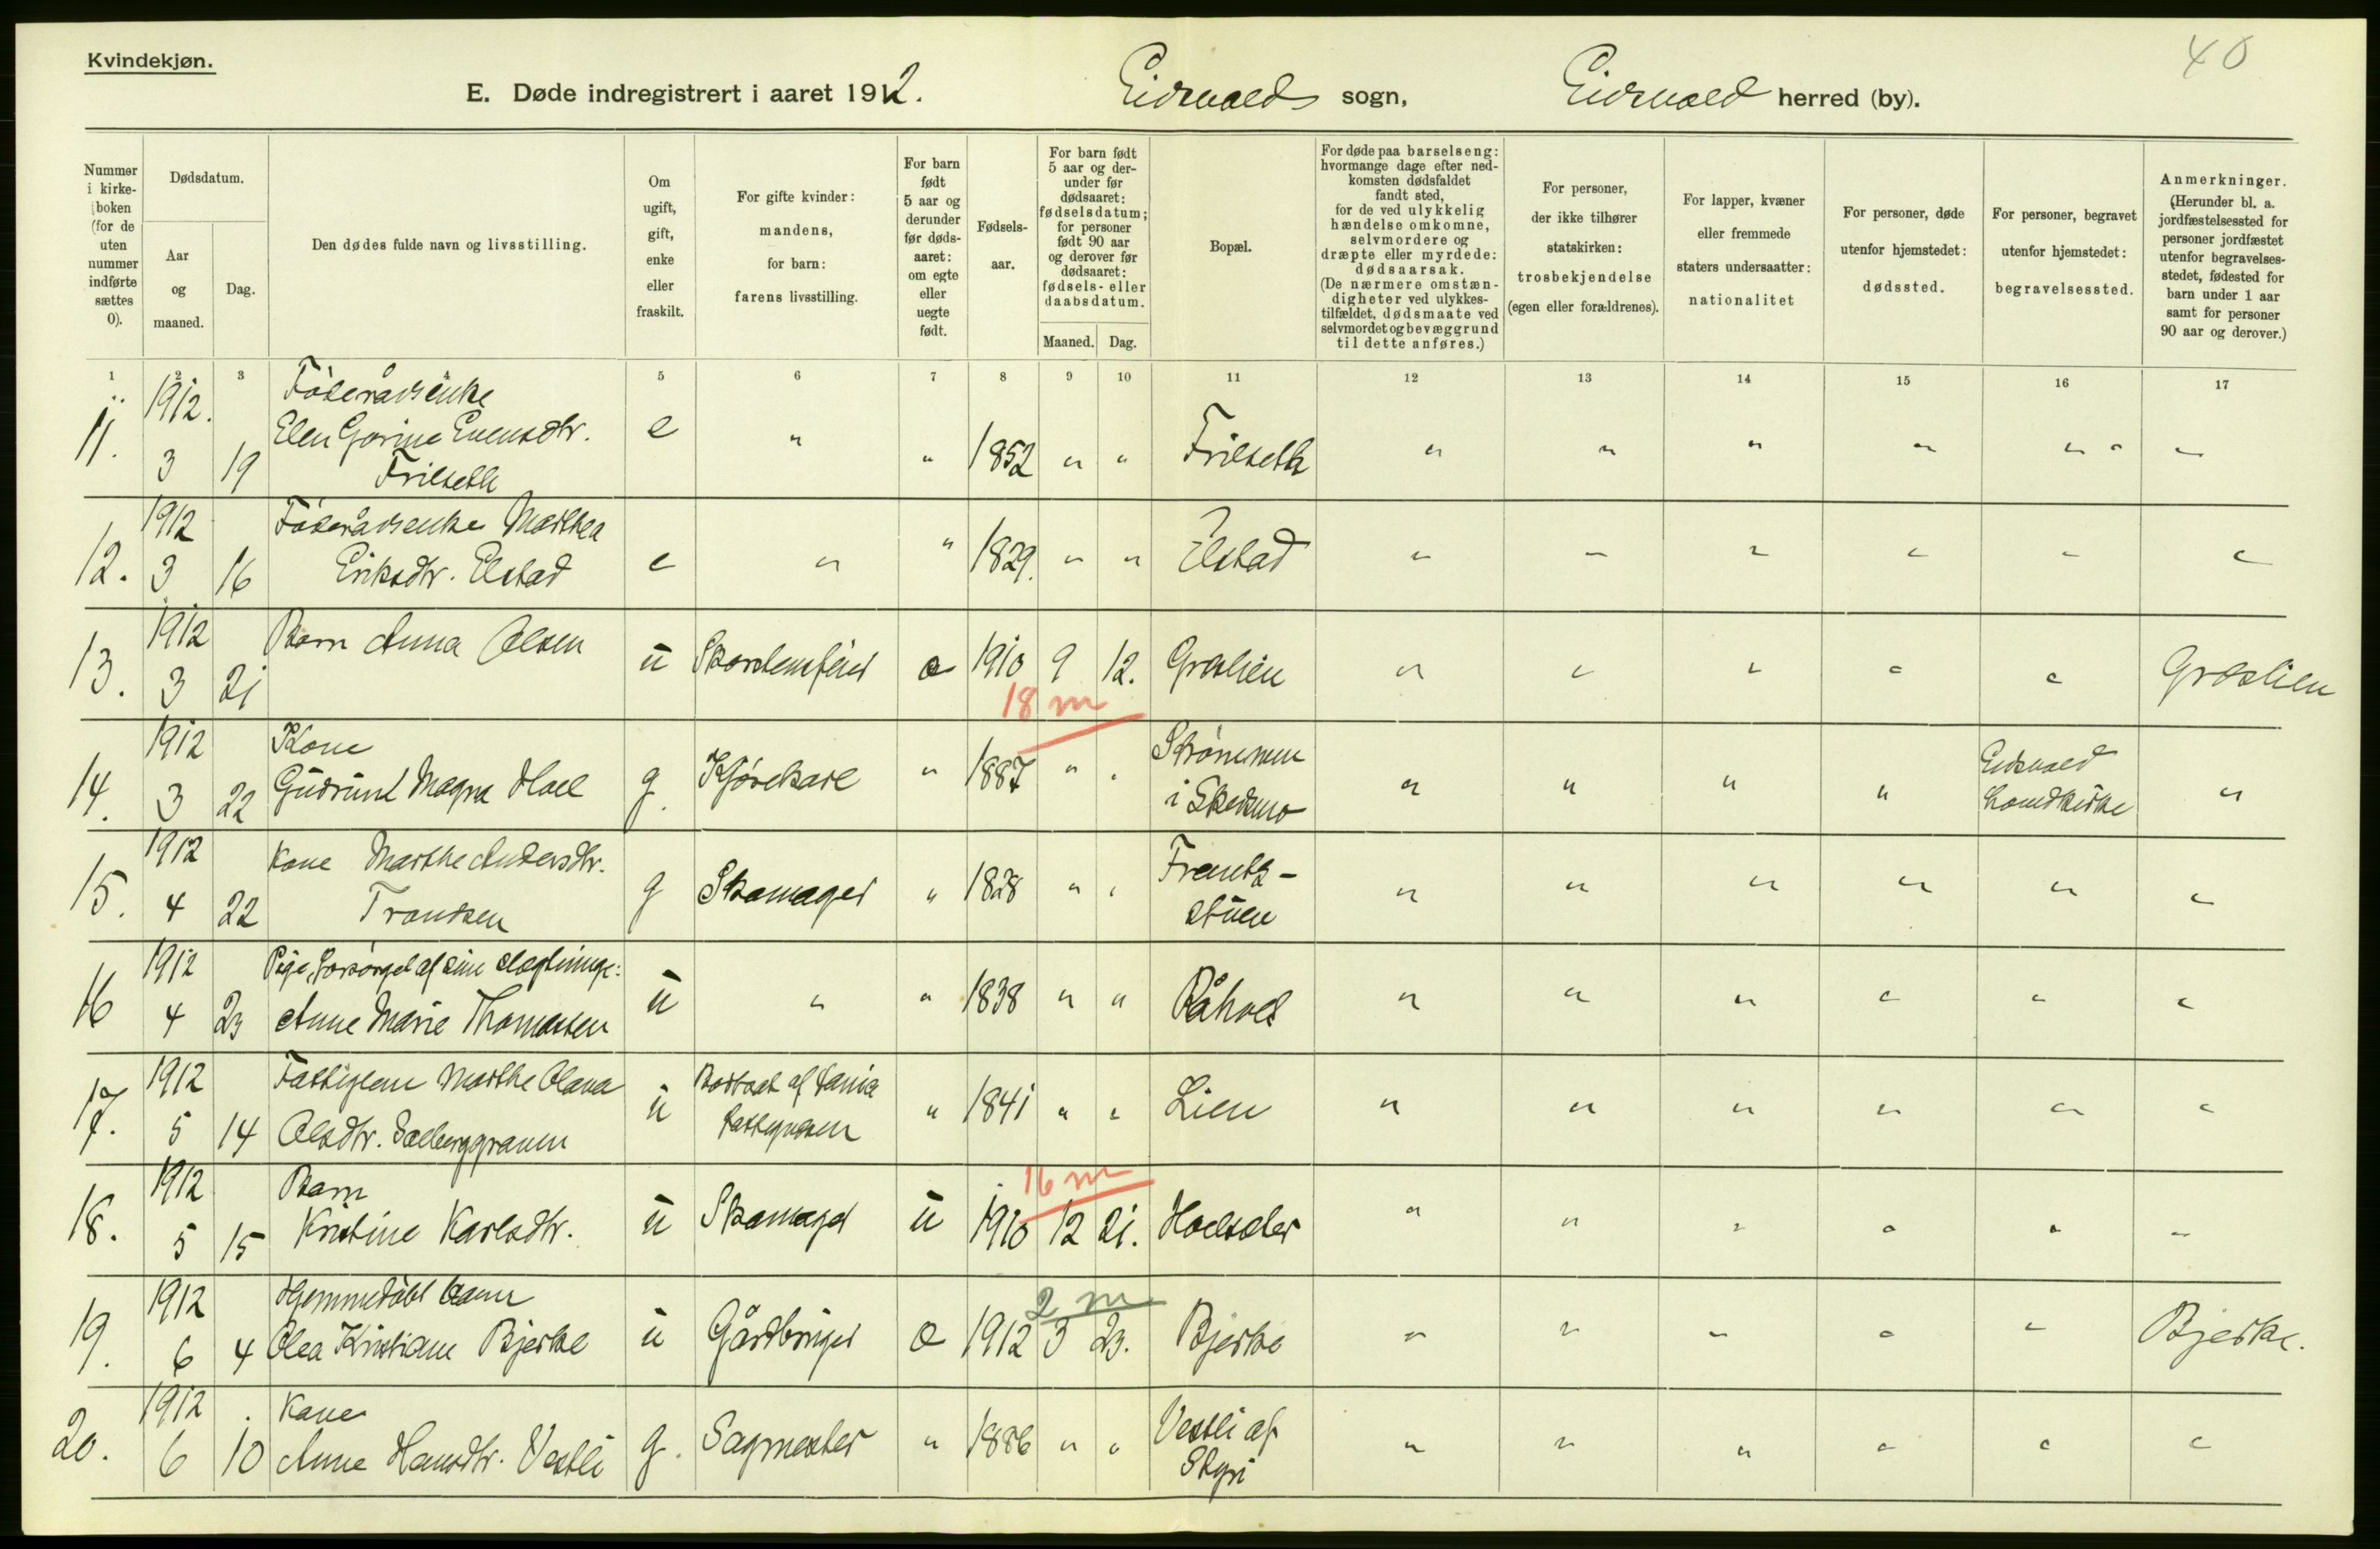 Kvindekjøn.
40
E. Døde indregistrert i aaret 1912. Eidsvolds sogn, Eidsvold herred (by).
Nummer i kirkeboken (for de uten nummer indførte sættes 0).
Dødsdatum.
Aar og maaned.
Dag.
Den dødes fulde navn og livsstilling.
Om ugift, gift, enke eller fraskilt.
For gifte kvinder: mandens, for barn: farens livsstilling.
For barn født 5 aar og derunder før dødsaaret: om egte eller uegte født.
Fødselsaar.
For barn født 5 aar og derunder før dødsaaret: fødselsdatum; for personer født 90 aar og derover før dødsaaret: fødsels- eller daabsdatum.
Maaned. Dag.
Bopæl.
For døde paa barselseng: hvormange dage efter nedkomsten dødsfaldet fandt sted, for de ved ulykkelig hændelse omkomne, selvmordere og dræpte eller myrdede: dødsaarsak. (De nærmere omstændigheter ved ulykkestilfældet, dødsmaate ved selvmordet og bevæggrund til dette anføres.)
For personer, der ikke tilhører statskirken: trosbekjendelse (egen eller forældrenes).
For lapper, kvæner eller fremmede staters undersaatter: nationalitet
For personer, døde utenfor hjemstedet: dødssted.
For personer, begravet utenfor hjemstedet: begravelsessted.
Anmerkninger. (Herunder bl. a. jordfæstelsessted for personer jordfæstet utenfor begravelsesstedet, fødested for barn under 1 aar samt for personer 90 aar og derover.)
1 2 3 4 5 6 7 8 9 10 11 12 13 14 15 16 17
11. 1912. 3 19 Føderådsenke
Elen Gorine Evensdtr.
Frilseth
e " " 1852 " " Frilseth " " " " " "
12. 1912 3 16 Føderådsenke Marthea
Eriksdtr. Elstad
e " " 1829. " " Elstad " " " " " "
13. 1912 3 21 Barn Anna Olsen
u Skorstensfeier e 1910 9 12. Græslien " " " " " Græslien
18 m
14. 1912 3 22 Kone
Gudrun Magna Hoel
g. Kjørekarl " 1887 " " Strømmen
i Skedsmo
" " " " Eidsvold
Hovedkirke
"
15. 1912 4 22 Kone Marthe Andersdtr.
Trondsen
g Skomager " 1828 " " Frantz-
stuen
" " " " " "
16 1912 4 23 Pige, forsørget af sine slægtninge:
Anne Marie Thomassen
u " " 1838 " " Råholt " " " " " "
17. 1912 5 14 Fattiglem Marthe Olava
Olsdtr. Solberggraven
u Bortsat af
" 1841 " " Lien " " " " " "
16 m
18. 1912 5 15 Barn
Kristine Karlsdtr.
u Skomager u 1910 12 21. Hoelseter " " " " " "
2 m
19. 1912 6 4 Hjemmedøbt barn
Olea Kristiane Bjerke
u Gårdbruger e 1912 3 23. Bjerke " " " " " Bjerke.
20. 1912 6 10 Kone
Anne Hansdtr. Vestli
g. Sagmester " 1886 " " Vestli af
Styri
" " " " " "